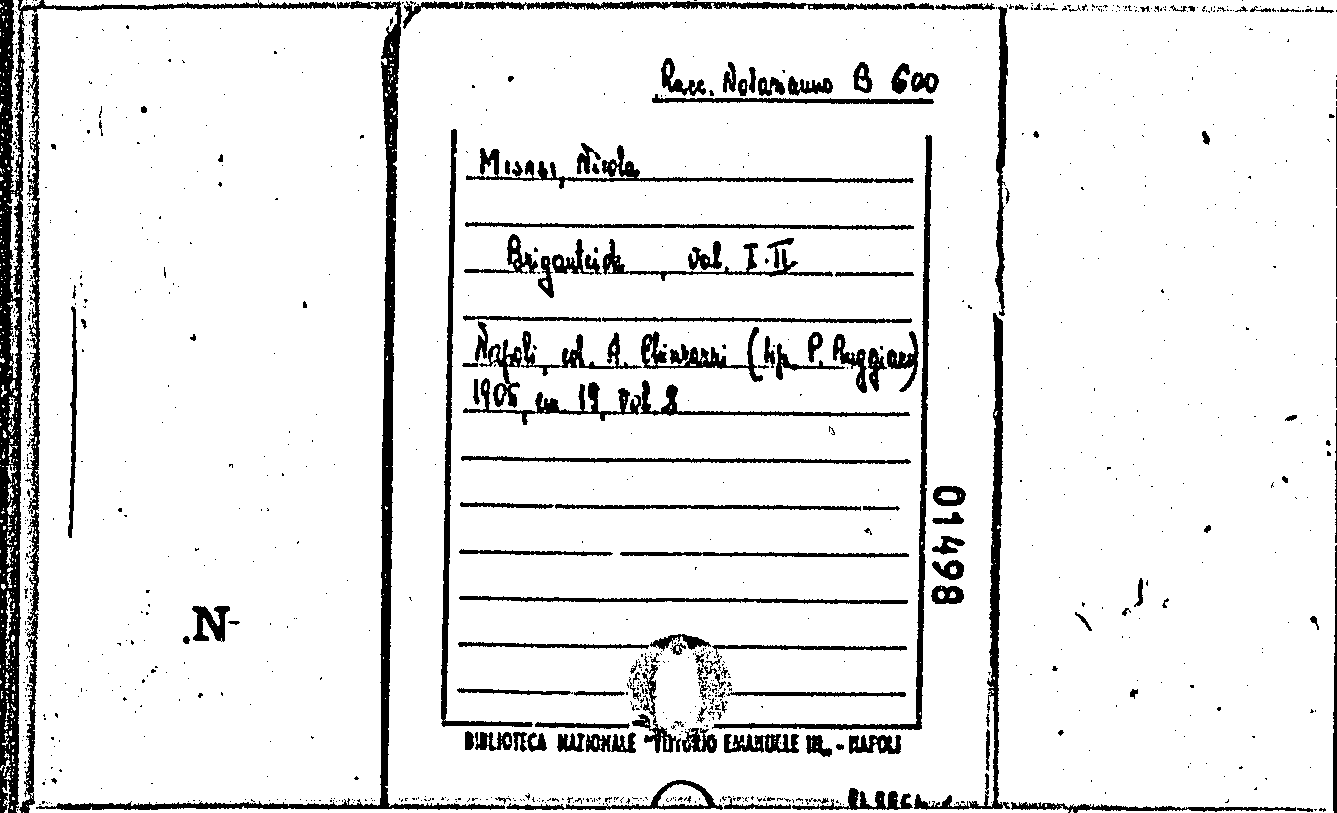 Racc. Notarianno B 600
Misasi, Nicola
Briganteide, vol. I-II
Napoli, ed. A. (tip. P. Ruggiano)
1906, in 19, vol. 2
01498
.N-
BIBLIOTECA NAZIONALE "VITTORIO EMANUELE III" - NAPOLI